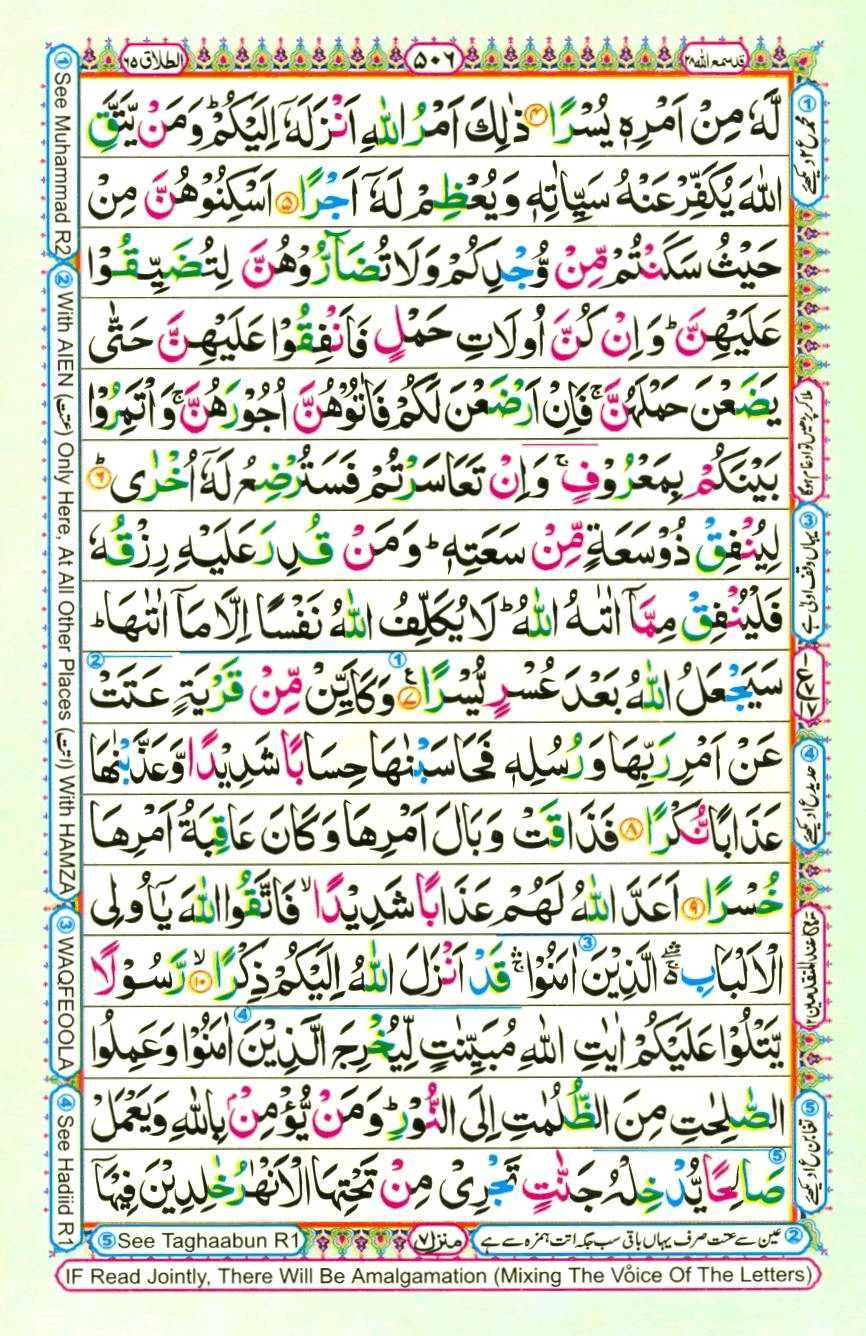 قد سمع الله ۲۸
۵۰۶
الطلاق ۶۵
لَّهٗ مِنْ اَمْرِهٖ يُسْرًا ۴ ذٰلِكَ اَمْرُ اللّٰهِ اَنْزَلَهٗۤ اِلَيْكُمْ ؕ وَ مَنْ يَّتَّقِ
اللّٰهَ يُكَفِّرْ عَنْهُ سَيِّاٰتِهٖ وَ يُعْظِمْ لَهٗۤ اَجْرًا ۵ اَسْكِنُوْهُنَّ مِنْ
حَيْثُ سَكَنْتُمْ مِّنْ وُّجْدِكُمْ وَلَا تُضَآرُّوْهُنَّ لِتُضَيِّقُوْا
عَلَيْهِنَّ ؕ وَ اِنْ كُنَّ اُولَاتِ حَمْلٍ فَاَنْفِقُوْا عَلَيْهِنَّ حَتّٰى
يَضَعْنَ حَمْلَهُنَّ ۚ فَاِنْ اَرْضَعْنَ لَكُمْ فَاٰتُوْهُنَّ اُجُوْرَهُنَّ ۚ وَ اْتَمِرُوْا
بَيْنَكُمْ بِمَعْرُوْفٍ ۚ وَ اِنْ تَعَاسَرْتُمْ فَسَتُرْضِعُ لَهٗۤ اُخْرٰى ۶
لِيُنْفِقْ ذُوْ سَعَةٍ مِّنْ سَعَتِهٖ ؕ وَ مَنْ قُدِرَ عَلَيْهِ رِزْقُهٗ
فَلْيُنْفِقْ مِمَّاۤ اٰتٰىهُ اللّٰهُ ؕ لَا يُكَلِّفُ اللّٰهُ نَفْسًا اِلَّا مَاۤ اٰتٰىهَا ؕ
سَيَجْعَلُ اللّٰهُ بَعْدَ عُسْرٍ يُّسْرًا ۷ وَكَاَيِّنْ مِّنْ قَرْيَةٍ عَتَتْ
عَنْ اَمْرِ رَبِّهَا وَ رُسُلِهٖ فَحَاسَبْنٰهَا حِسَابًا شَدِيْدًا وَّ عَذَّبْنٰهَا
عَذَابًا نُّكْرًا ۸ فَذَاقَتْ وَبَالَ اَمْرِهَا وَ كَانَ عَاقِبَةُ اَمْرِهَا
خُسْرًا ۹ اَعَدَّ اللّٰهُ لَهُمْ عَذَابًا شَدِيْدًا ۙ فَاتَّقُوا اللّٰهَ يٰۤاُولِى
الْاَلْبَابِ ۛۚ الَّذِيْنَ اٰمَنُوْا ۛ قَدْ اَنْزَلَ اللّٰهُ اِلَيْكُمْ ذِكْرًا ۱۰ۙ رَّسُوْلًا
يَّتْلُوْا عَلَيْكُمْ اٰيٰتِ اللّٰهِ مُبَيِّنٰتٍ لِّيُخْرِجَ الَّذِيْنَ اٰمَنُوْا وَ عَمِلُوا
الصّٰلِحٰتِ مِنَ الظُّلُمٰتِ اِلَى النُّوْرِ ؕ وَ مَنْ يُّؤْمِنْۢ بِاللّٰهِ وَ يَعْمَلْ
صَالِحًا يُّدْخِلْهُ جَنّٰتٍ تَجْرِىْ مِنْ تَحْتِهَا الْاَنْهٰرُ خٰلِدِيْنَ فِيْهَاۤ
① See Muhammad R2
② With AIEN (عتت) Only Here, At All Other Places (اتت) With HAMZA
③ WAQFEOOLA
④ See Hadiid R1
① محمد ع ۲ دیکھئے
ملا کر پڑھیں تو ادغام ہوگا
③ یہاں وقف اولی ہے
④ حدید ع ۱ دیکھئے
⑤ تغابن ع ۱ دیکھئے
② عین سے عتت صرف یہاں باقی سب جگہ اتت ہمزہ سے ہے
منزل ۷
⑤ See Taghaabun R1
IF Read Jointly, There Will Be Amalgamation (Mixing The Voice Of The Letters)